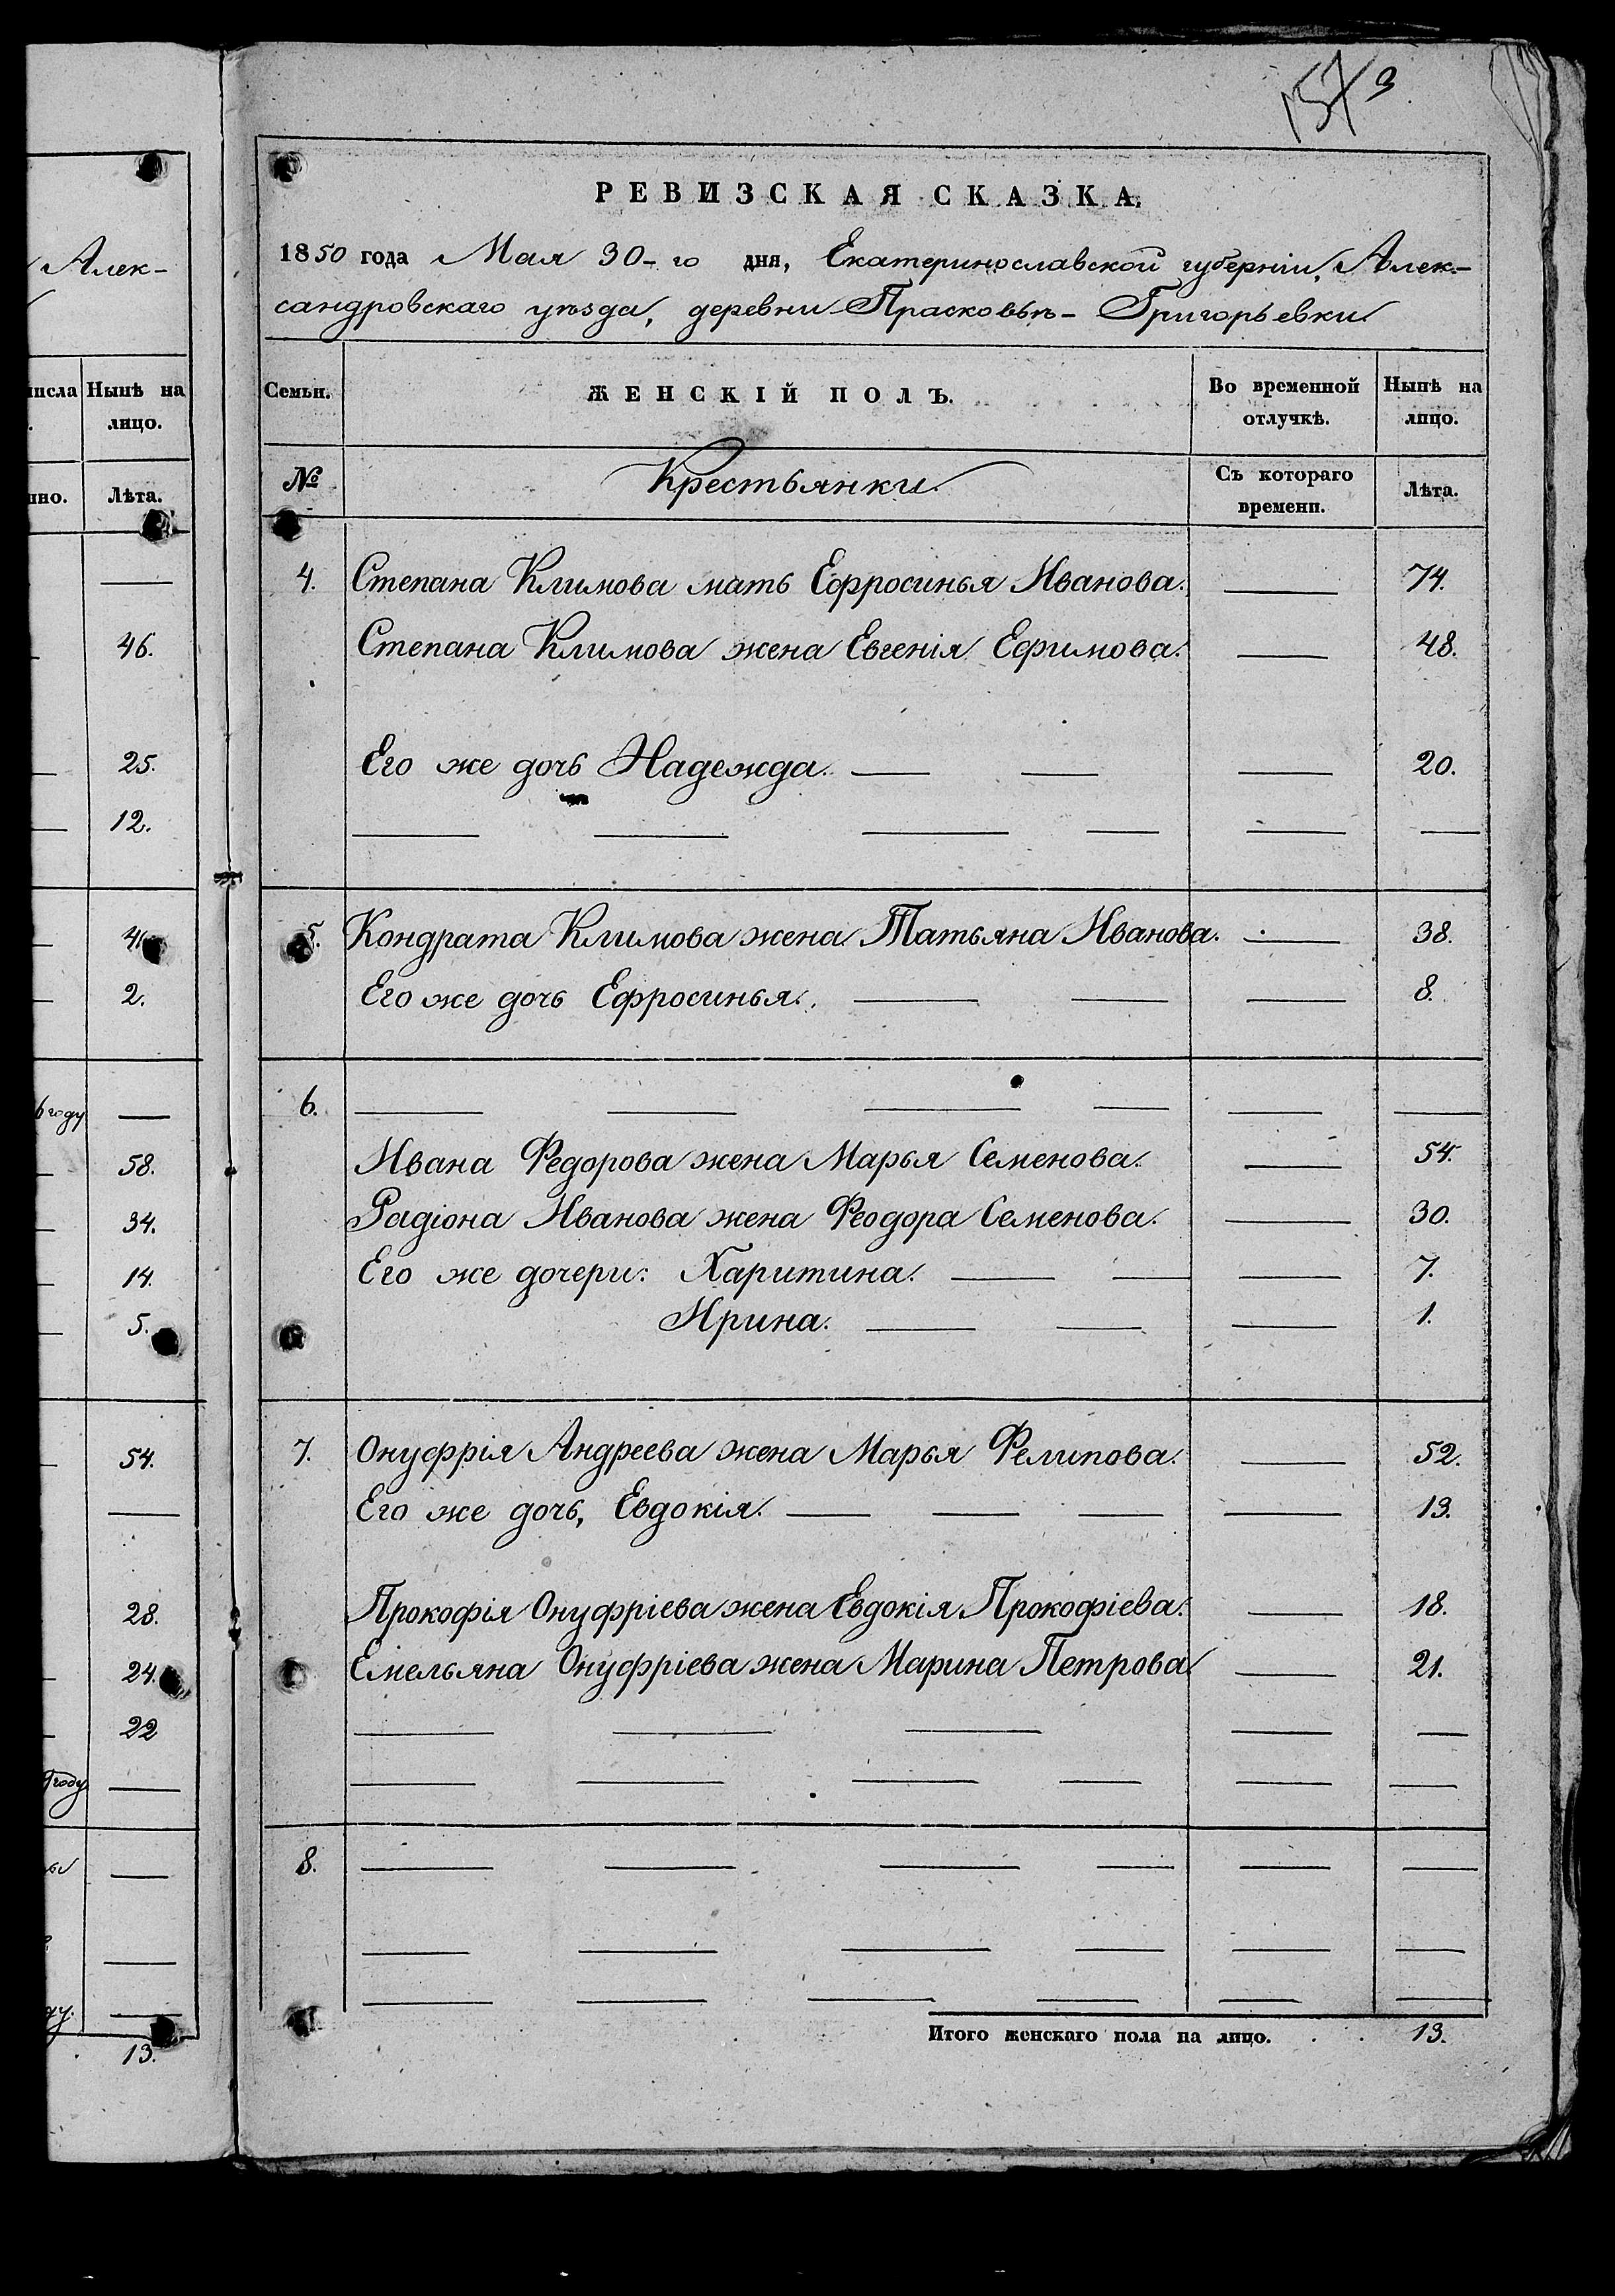 157 3
РЕВИЗСКАЯ СКАЗКА.
1850 года Мая 30-го дня, Екатеринославской губерніи, Алек-
сандровскаго уѣзда, деревни Прасковьѣ-Григорьевки
Семьи. ЖЕНСКІЙ ПОЛЪ. Во временной отлучкѣ. Нынѣ на лицо.
№ Крестьянки. Съ котораго времени. Лѣта.
4. Степана Климова мать Ефросинья Иванова. — 74.
Степана Климова жена Евгенія Ефимова. — 48.
Его же дочь Надежда. — — — 20.
— — — — — —
5. Кондрата Климова жена Татьяна Иванова. — 38.
Его же дочь Ефросинья. — — — 8.
6. — — — — — —
Ивана Федорова жена Марья Семенова. — 54.
Радіона Иванова жена Феодора Семенова. — 30.
Его же дочери: Харитина. — — — 7.
Ирина. — — — 1.
7. Онуфрія Андреева жена Марья Фелипова. — 52.
Его же дочь, Евдокія. — — — — 13.
Прокофія Онуфріева жена Евдокія Прокофіева. — 18.
Емельяна Онуфріева жена Марина Петрова — 21.
— — — — —
— — — — — —
8. — — — — — —
— — — — — —
— — — — — —
Итого женскаго пола на лицо. . . 13.
Алек-
числа Нынѣ на
лицо.
Лѣта.
—
46.
25.
12.
2.
году —
58.
34.
14.
5.
54.
—
28.
24.
22
году —
—
—
—
13.